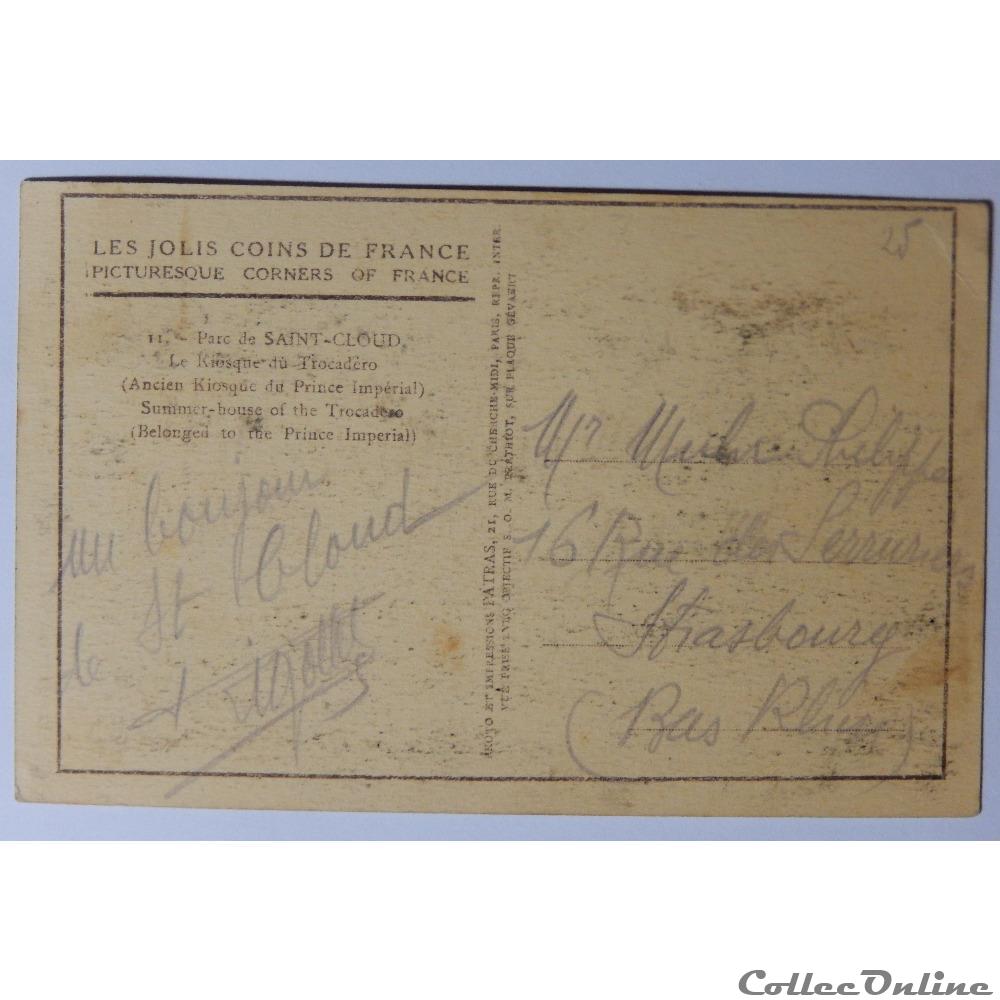 LES JOLIS COINS DE FRANCE
PICTURESQUE CORNERS OF FRANCE
11. - Parc de SAINT-CLOUD.
Le Kiosque du Trocadéro
(Ancien Kiosque du Prince Impérial)
Summer-house of the Trocadero
(Belonged to the Prince Imperial)
un bonjour
de St Cloud
PHOTO ET IMPRESSIONS PATRAS, 21, RUE DU CHERCHE-MIDI, PARIS, REPR. INTER.
VUE PRISE AVEC OBJECTIF S. O. M. BERTHIOT, SUR PLAQUE GÉVAERT
25
Mr
16 Rue des Serruriers
Strasbourg
(Bas Rhin)
CollecOnline